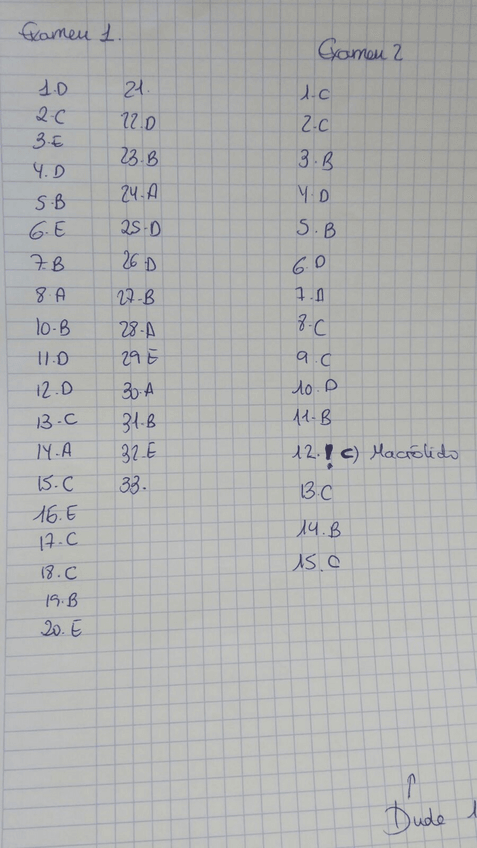 Examen 1.
1.D
2.C
3.E
4.D
5.B
6.E
7.B
8.A
10.B
11.D
12.D
13.C
14.A
15.C
16.E
17.C
18.C
19.B
20.E
21.
22.D
23.B
24.A
25.D
26.D
27.B
28.A
29.E
30.A
31.B
32.E
33.
Examen 2
1.C
2.C
3.B
4.D
5.B
6.D
7.D
8.C
9.C
10.D
11.B
12.! c) Macrólido
13.C
14.B
15.C
↑
Dude 1